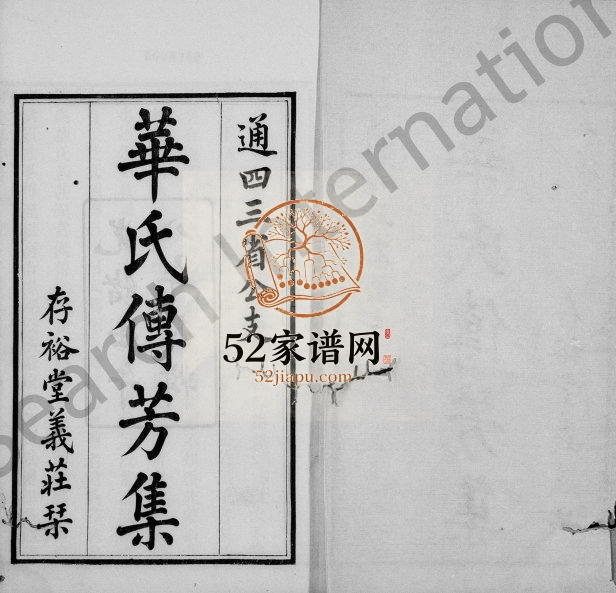 通四三省公支
華氏傳芳集
存裕堂義莊栞
52家谱网
52jiapu.com
earch Internation